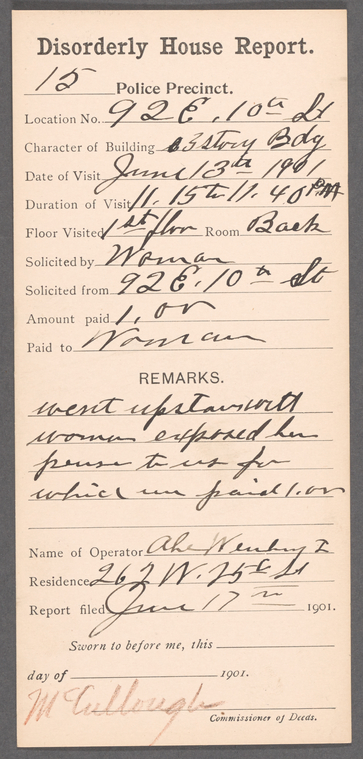 Disorderly House Report.
15 Police Precinct.
Location No. 92 E. 10th St
Character of Building 3 story Bdg
Date of Visit June 13th 1901
Duration of Visit 11.15 to 11.40 PM
Floor Visited 1st floor Room Back
Solicited by Woman
Solicited from 92 E. 10th St
Amount paid 1.00
Paid to Woman
REMARKS.
went upstairs with
woman exposed her
person to us for
which we paid 1.00
Name of Operator Abe
Residence 262 W. 25 St
Report filed June 17 1901.
Sworn to before me, this
day of 1901.
McCullough
Commissioner of Deeds.